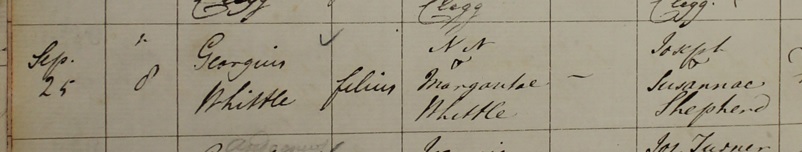 Clegg Clegg Clegg.
Sep. " Georgius ✓ N N Joseph
25 8 Whittle filius & Margaritae — & Susannae
Whittle Shepherd
Jos Turner